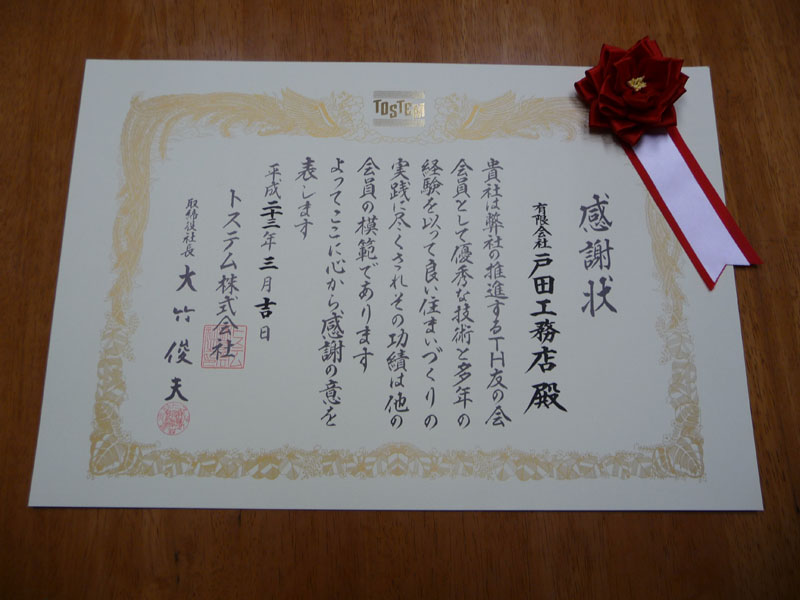 TOSTEM
感謝状
有限会社 戸田工務店 殿
貴社は弊社の推進するTH友の会
会員として優秀な技術と多年の
経験を以って良い住まいづくりの
実践に尽くされその功績は他の
会員の模範であります
よってここに心から感謝の意を
表します
平成二十三年三月吉日
トステム株式会社
取締役社長 大竹俊夫